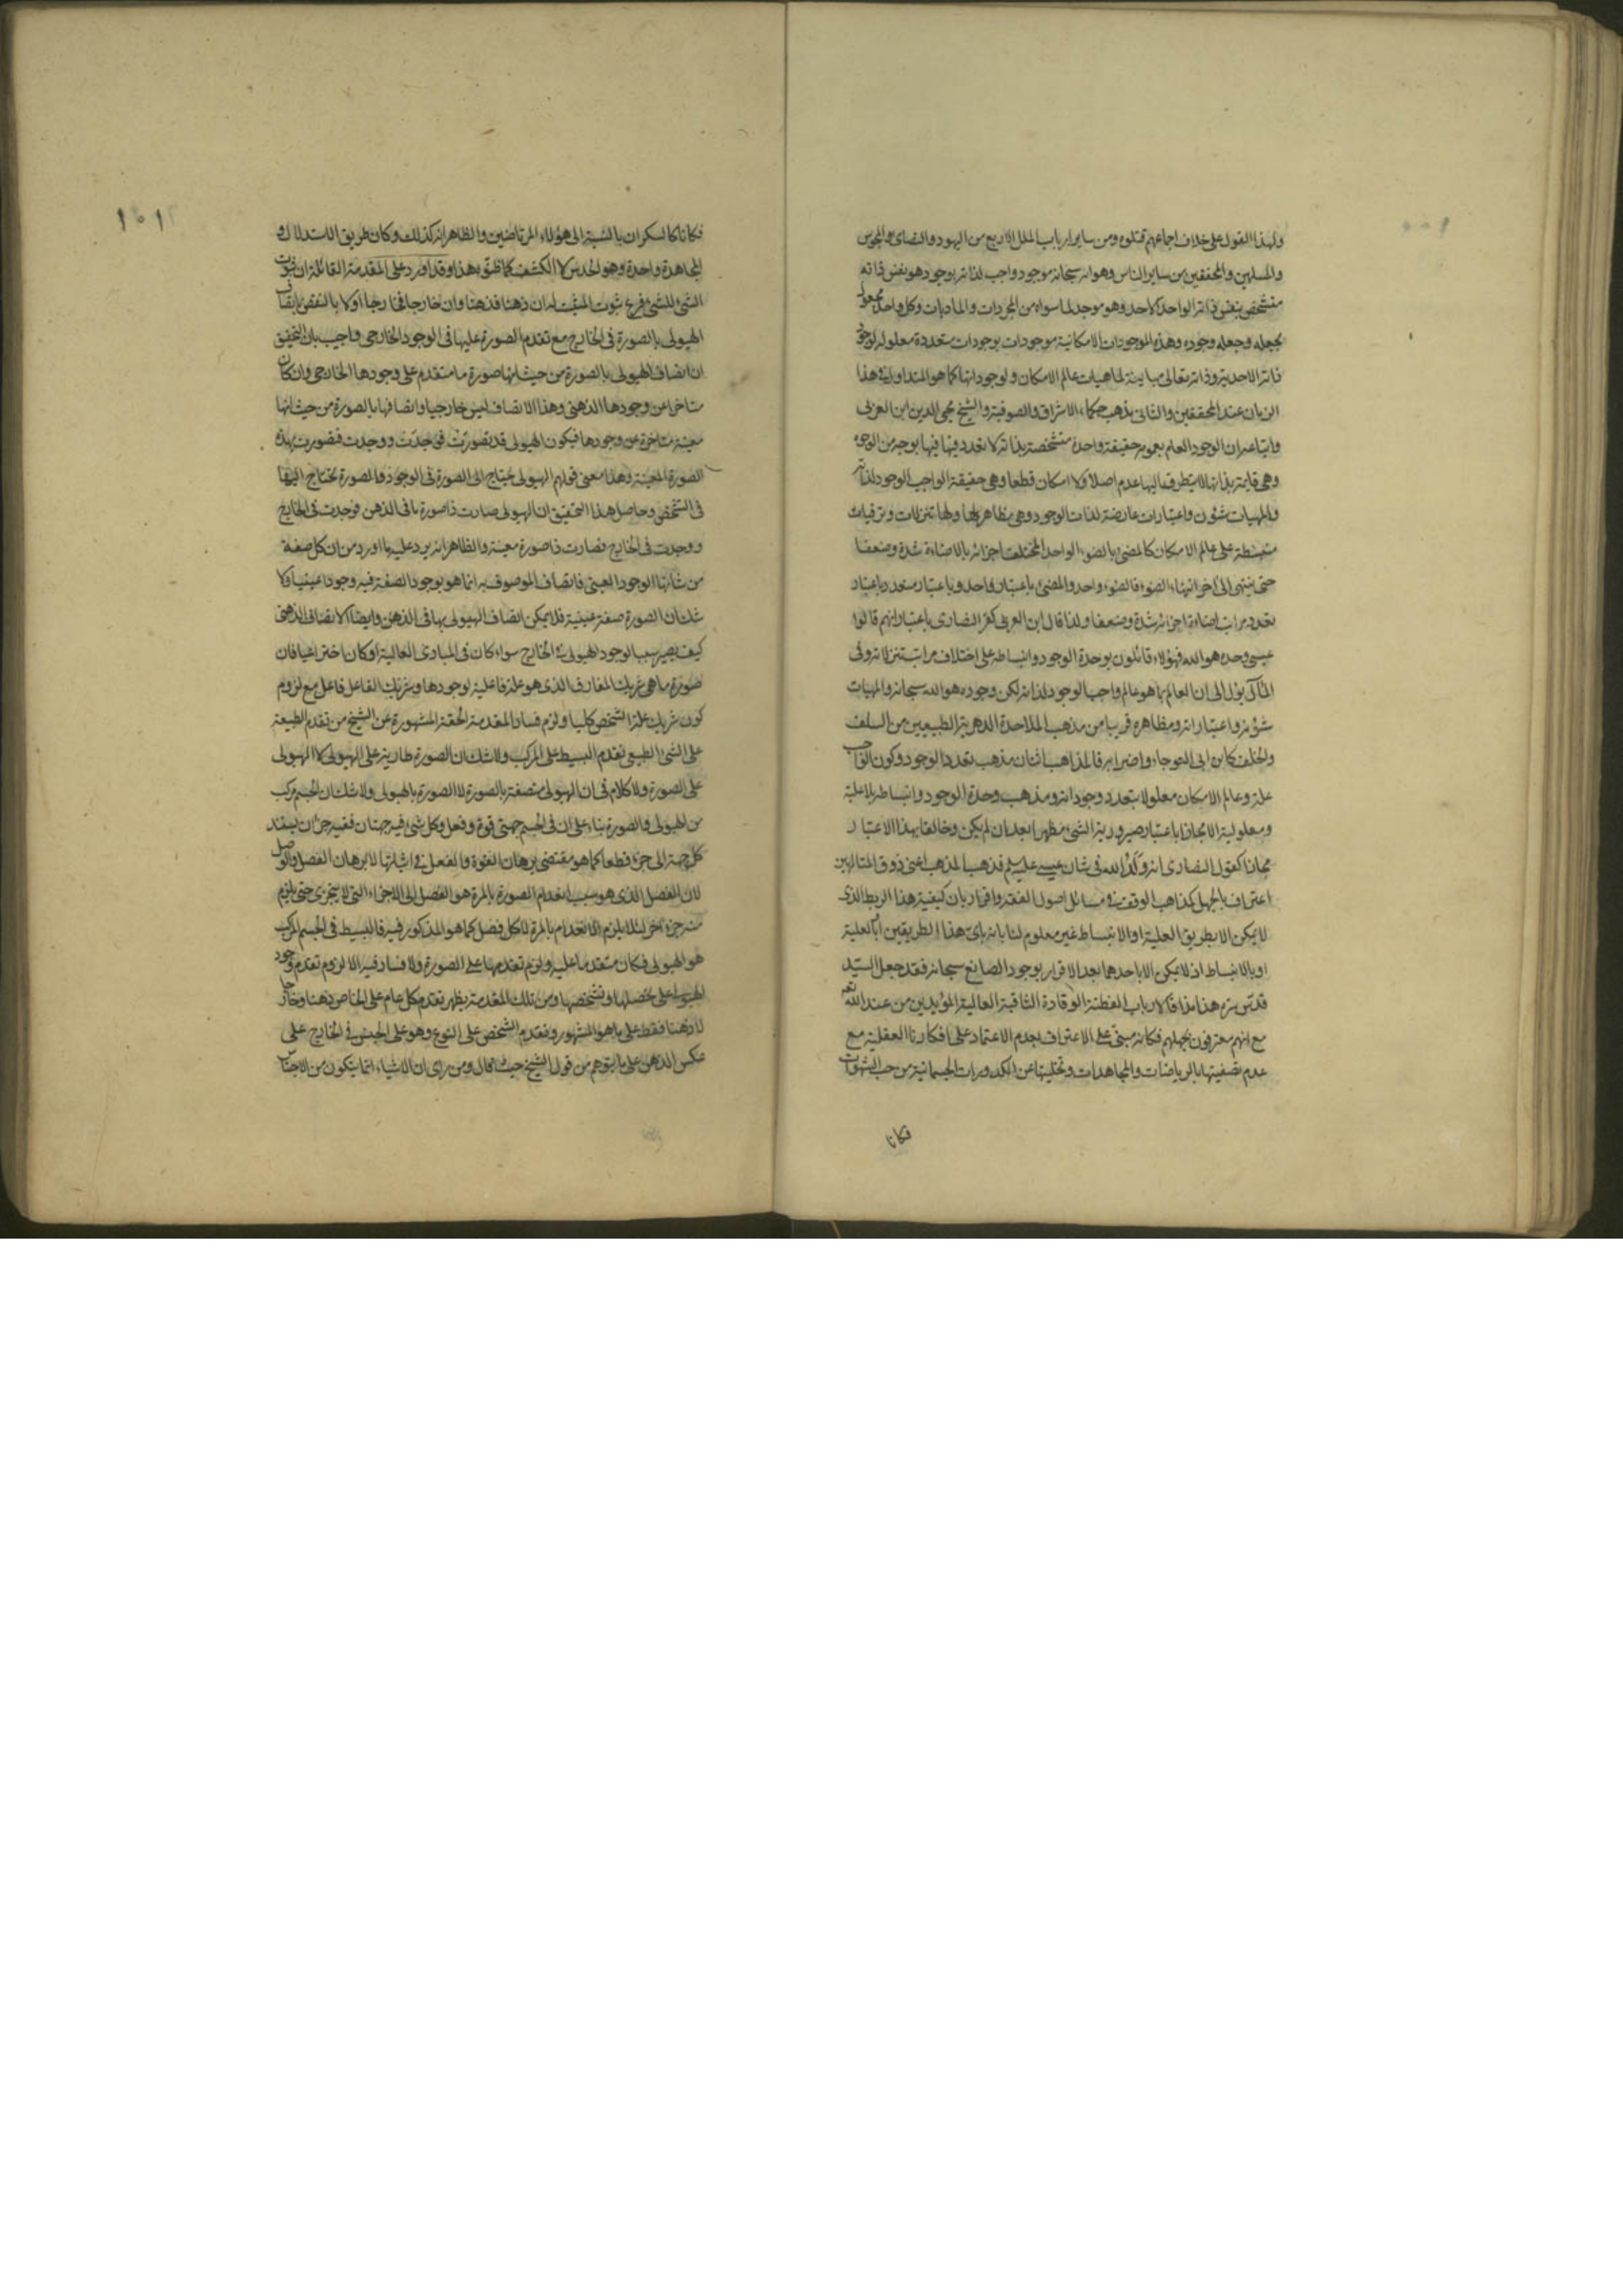 ولهذا القول على خلاف اجماعهم قتلوه ومن ساير ارباب الملل الاربع من اليهود والنصارى والمجوس
والمسلمين والمحققين من ساير الناس وهو انه سبحانه موجود واجب لذاته بوجود هو نفس ذاته
متشخص بنفس ذاته الواحد كلاحد وهو موجد لما سواه من المجردات والماديات وكل واحد مجعول
بجعله وجعله وجوده وهذه الموجودات الامكانية موجودات بوجودات متعددة معلولة لوجود
ذاته الاحدية وذاته تعالى مباينة لماهيات عالم الامكان ولوجوداتها كما هو المتداول في هذا
الزمان عند المحققين والثانى مذهب حكماء الاشراق والصوفية والشيخ محيى الدين ابن العربى
واتباعه ان الوجود العام بعمومه حقيقة واحدة متشخصة بذاته لا تعدد فيها بوجه من الوجوه
وهى قايمة بذاتها لا يتطرق اليها عدم اصلا ولا امكان قطعا وهى حقيقة الواجب الوجود لذاته
والمهيات شئون واعتبارات عارضة لذات الوجود وهى مظاهر لها ولها تنزلات وترقيات
منبسطة على عالم الامكان كالمضئ بالضوء الواحد المختلف اجزائه بالاضاءة شدة وضعفا
حتى ينتهى الى اخر انتهاء الضوء فالضوء واحد والمضئ باعتبار واحد وباعتبار متعدد باعتبار
تعدد مراتب اضاءة اجزائه شدة وضعفا ولذا قال ابن العربى كفر النصارى باعتبار انهم قالوا
عيسى وحده هو الله فهؤلاء قائلون بوحدة الوجود وانبساطه على اختلاف مراتب تنزلاته وفى
المآل يؤل الى ان العالم بما هو عالم واجب الوجود لذاته لكن وجوده هو الله سبحانه والمهيات
شؤنه واعتباراته ومظاهره قريبا من مذهب الملاحدة الدهرية الطبيعيين من السلف
والخلف كابن ابى العوجاء واضرابه فالمذاهب اثنان مذهب تعدد الوجود وكون الواجب
علة وعالم الامكان معلولا بتعدد وجوداته ومذهب وحدة الوجود وانبساطه بلا علية
ومعلولية الا مجازا باعتبار صيرورية الشئ مظهرا بعد ان لم يكن وخالقا بهذا الاعتبار
مجازا كقول النصارى انه ولد الله فى شان عيسى عليه السلم فذهب المذهب اعنى ذوق المتالهين
اعتراف بالجهل كمذاهب الوقف فى مسائل اصول الفقه واقرار بان كيفية هذا الربط الذى
لا يمكن الا بطريق العلية او الانبساط غير معلوم لنا بانه باى هذا الطريقين ابالعلية
او بالانبساط اذ لا يمكن الا باحدهما بعد الاقرار بوجود الصانع سبحانه فقد جعل السيد
قدس سره هذا مذاقا لارباب الفطنة الوقادة الثاقبة العالية المؤيدين من عند الله
مع انهم معترفون بجهلهم فكانه مبنى على الاعتراف بعدم الاعتماد على افكارنا العقلية مع
عدم تصفيتها بالرياضات والمجاهدات وتخليتها عن الكدورات الجسمانية من حب الشهوات
فكانا
١٥١
فكانا كالسكران بالنسبة الى هؤلاء المرتاضين والظاهر انه كذلك وكان طريق الاستدلال و
المجاهدة واحدة وهو الحدس لا الكشف كما ظنوه بهذا وقد اورد على المقدمة القائلة ان ثبوت
الشئ للشئ فرع ثبوت المثبت له ان ذهنا فذهنا وان خارجا فخارجا اولا بالنقض باتصاف
الهيولى بالصورة فى الخارج مع تقدم الصورة عليها فى الوجود الخارجى واجيب بان التحقيق
ان اتصاف الهيولى بالصورة من حيث انها صورة ما متقدم على وجودها الخارجى وان كان
متاخرا عن وجودها الذهنى وهذا الاتصاف ليس خارجيا واتصافها بالصورة من حيث انها
معينة متاخرة عن وجودها فيكون الهيولى قد تصورت فوجدت ووجدت فتصورت بهذه
الصورة المعينة وهذا معنى قولهم الهيولى تحتاج الى الصورة فى الوجود والصورة تحتاج اليها
فى التشخص وحاصل هذا التحقيق ان الهيولى صارت ذا صورة ما فى الذهن فوجدت فى الخارج
ووجدت فى الخارج فصارت ذا صورة معينة والظاهر انه يرد عليه ما اورد من ان كل صفة
من شانها الوجود العينى فاتصاف الموصوف به انما هو بوجود الصفة فيه وجودا عينيا ولا
شك ان الصورة صفة عينية فلا يمكن اتصاف الهيولى بها فى الذهن وايضا الاتصاف الذهنى
كيف يصير سببا لوجود الهيولى فى الخارج سواء كان فى المبادى العالية او كان اختراعيا فان
صورة ما هى شريك المفارق الذى هو علة فاعلية لوجودها وشريك الفاعل فاعل مع لزوم
كون شريك علة الشخص كليا ولزم فساد المقدمة الحقة المشهورة عن الشيخ من تقدم الطبيعة
على الشئ الطبيعى تقدم البسيط على المركب ولا شك ان الصورة طارية على الهيولى لا الهيولى
على الصورة ولا كلام فى ان الهيولى متصفة بالصورة لا الصورة بالهيولى ولا شك ان الجسم مركب
من الهيولى والصورة بناء على ان فى الجسم جهتى قوة وفعل وكل شئ فيه جهتان ففيه جزآن يستند
كل جهة الى جزء قطعا كما هو مقتضى برهان القوة والفعل فى اثباتها لا برهان الفصل والوصل
لان الفصل الذى هو سبب انعدام الصورة بالمرة هو الفصل الى الاجزاء التى لا يتجزى حتى يلزم
منه جزء آخر لئلا يلزم الانعدام بالمرة لا كل فصل كما هو المذكور فيه فالبسيط فى الجسم المركب
هو الهيولى فكان متقدما عليه ولزم تقدمها على الصورة ولا فساد فيه الا لزوم تقدم وجود
الهيولى على تحصلها وتشخصها ومن تلك المقدمة يظهر تقدم كل عام على الخاص ذهنا وخارجا
لا ذهنا فقط على ما هو المشهور وتقدم الشخص على النوع وهو على الجنس فى الخارج على
عكس الذهن على ما يتوهم من قول الشيخ حيث قال ومن راى ان الاشياء انما يتكون من الاجناس